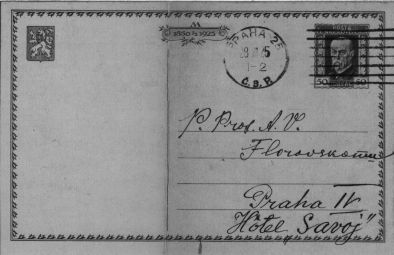 1850 1925
PRAHA 25
1-2
Č.S.P.
POŠTA
50 50
P. Prof. A. V.
Florovskému
Praha IV
Hôtel „Savoj"